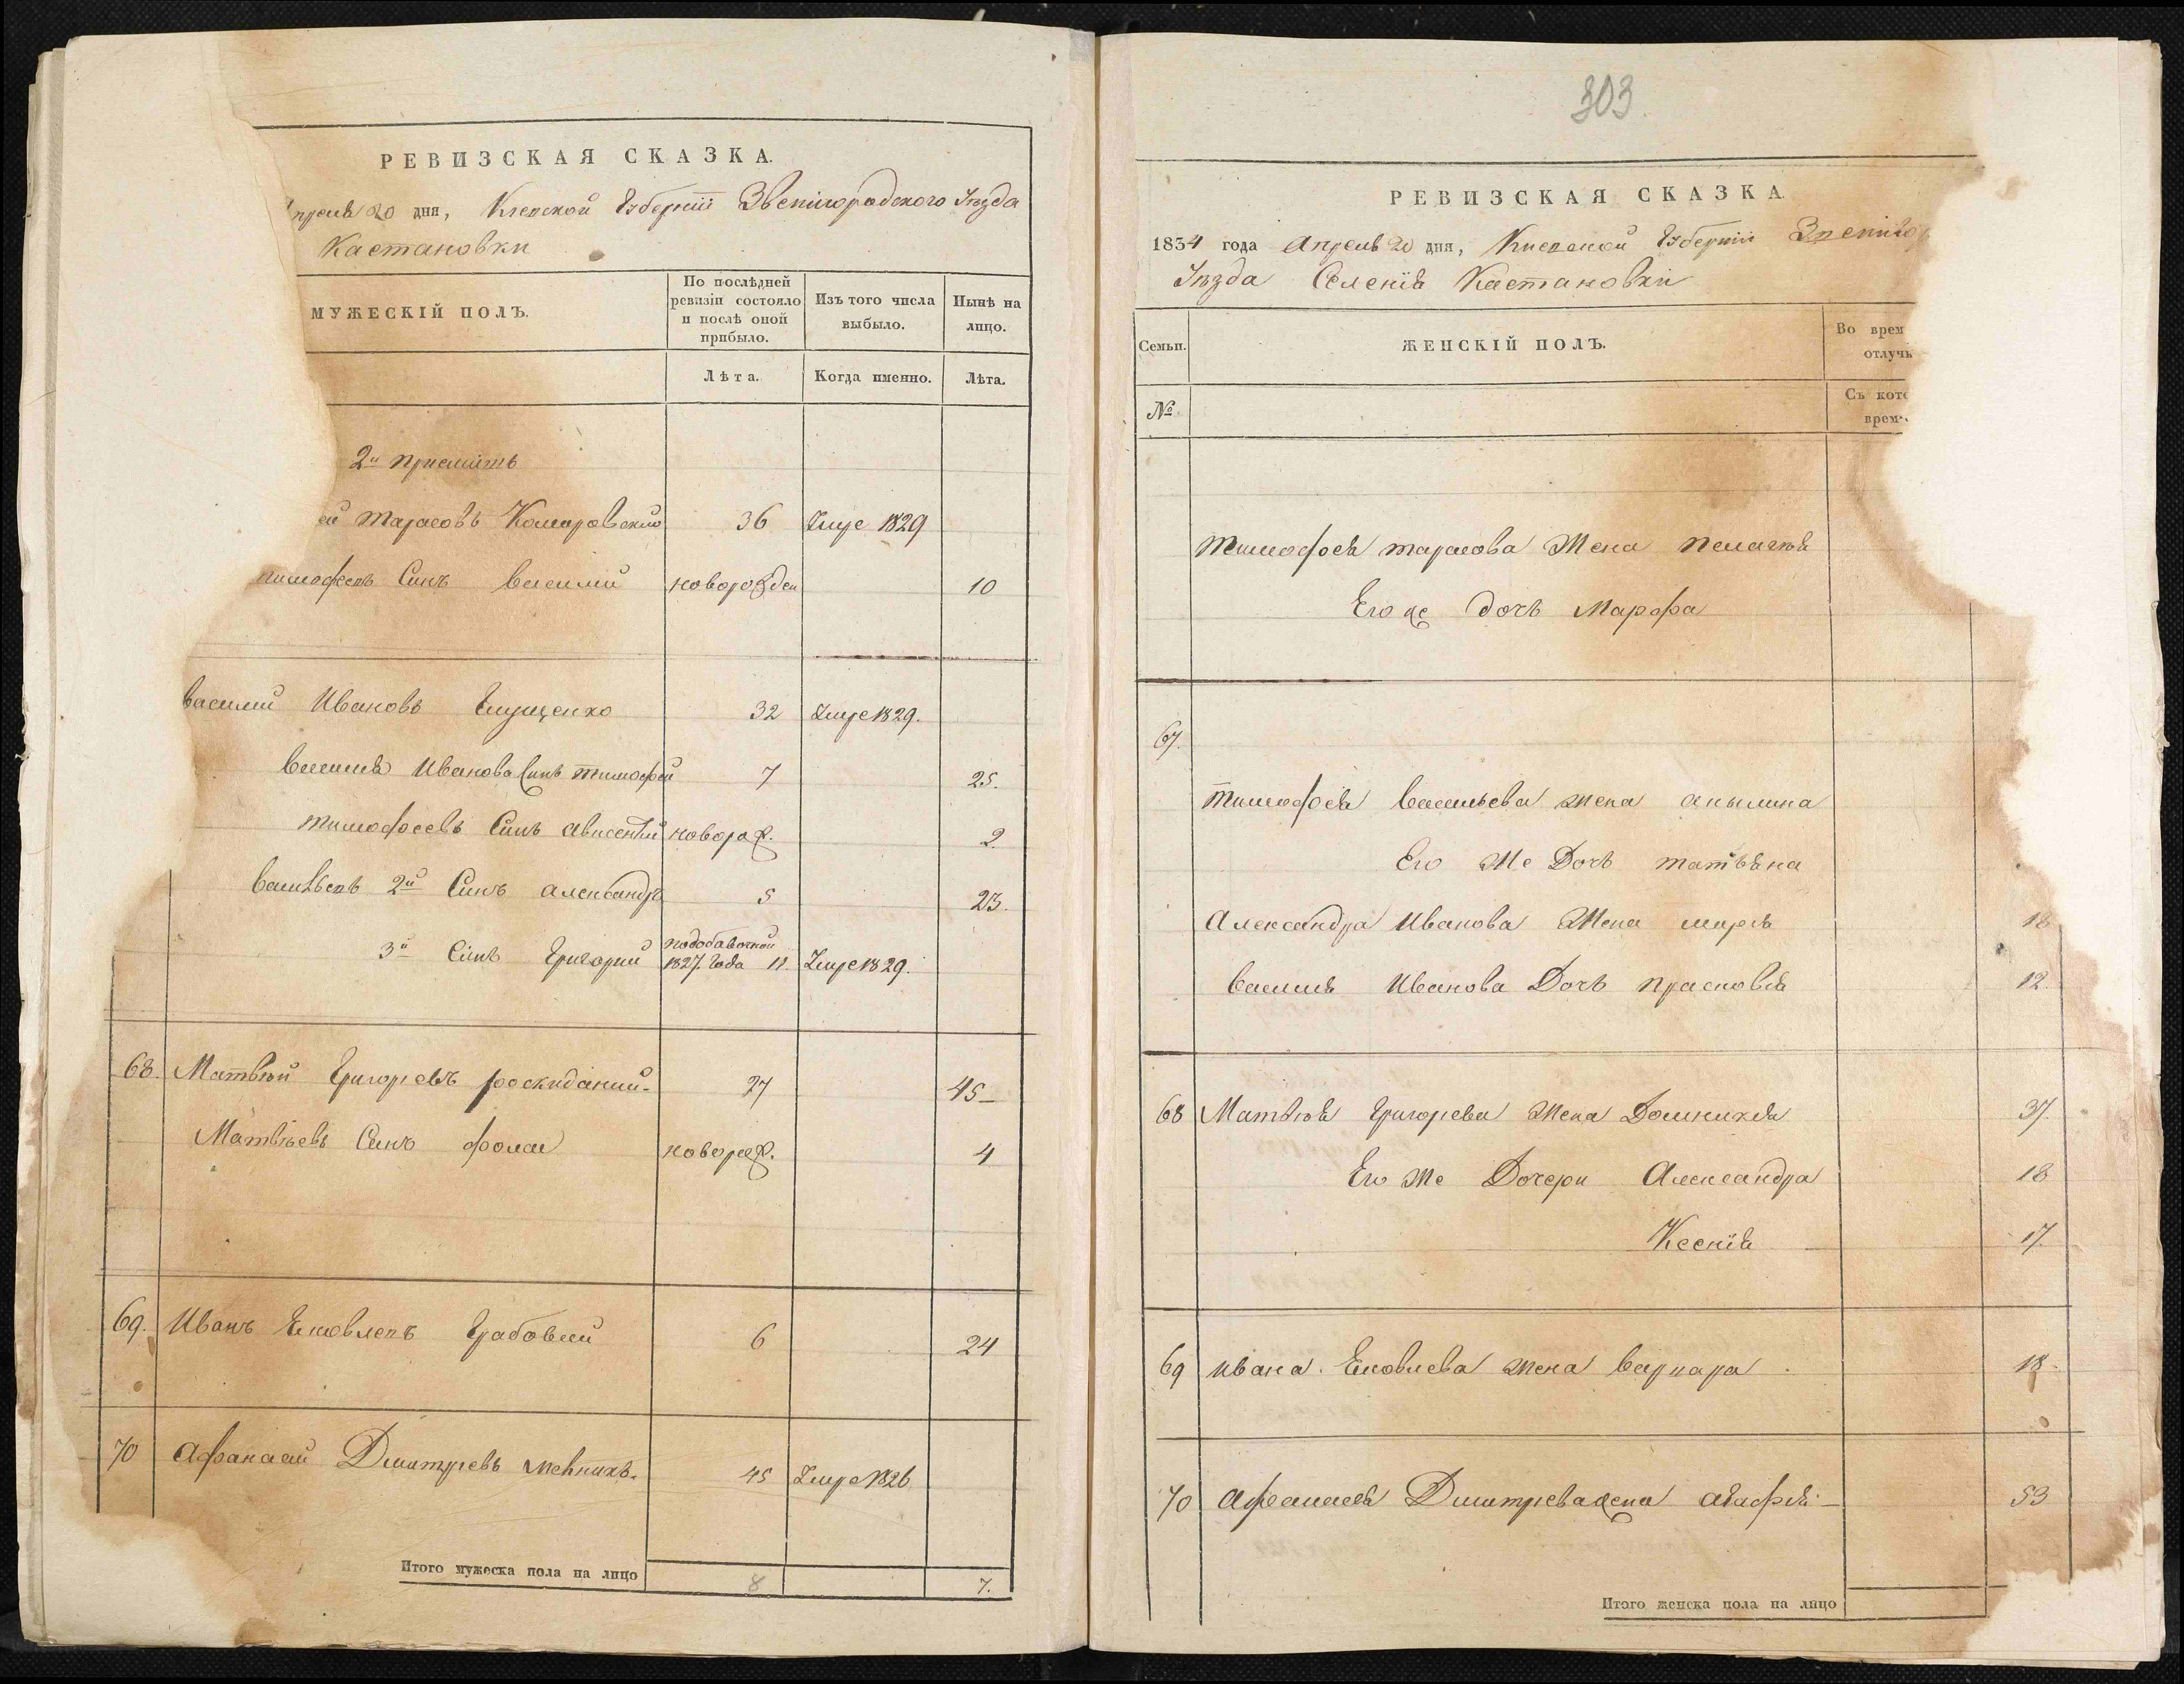 РЕВИЗСКАЯ СКАЗКА.
20 дня, Кіевской Губерніи Звенигородского Уезда
Кастановки
МУЖЕСКІЙ ПОЛЪ.
По послѣдней ревизіи состояло и послѣ оной прибыло.
Изъ того числа выбыло.
Нынѣ на лицо.
Лѣта.
Когда именно.
Лѣта.
2й приемить
Тарасовъ Комаровский 36 Умре 1829
Тимофеевъ Синъ Василий новорожден 10
Василий Ивановъ 32 Умре 1829.
Василия Иванова Синъ Тимофей 7 25.
Тимофеевъ Синъ Авксентий новорож. 2.
Васильевъ 2й Синъ Александръ 5 23.
3й Синъ Григорий подобавочной 1827. Года 11. Умре 1829.
68. Матвѣй Григориевъ роскиданий. 27 45
Матвѣевъ Синъ Фома новорож. 4
69. Иванъ Яковлевъ Грабовий 6 24
70 Афанасий Дмитриевъ мельникъ. 45 Умре 1826
Итого мужеска пола на лицо 8 7.
303.
РЕВИЗСКАЯ СКАЗКА.
1834 года Апреля 20 дня, Киевской Губернии
Уезда Селения Кастановки
Семьи.
ЖЕНСКІЙ ПОЛЪ.
Во врем
отлуч
№
Съ кото
врем
Тимофея Тарасова Жена Пелагея
Его же дочь Марфа
67.
Тимофея Васильева жена Акылина
Его же Дочь Татьяна
Александра Иванова Жена Мария 18
Василия Иванова Дочь Прасковия 12.
68 Матвѣя Григориева Жена Домникия 37.
Его же Дочери Александра 18
Ксения 17.
69 Ивана Яковлева жена Варвара 18.
70 Афанасия Дмитриева жена Агафия 53
Итого женска пола на лицо